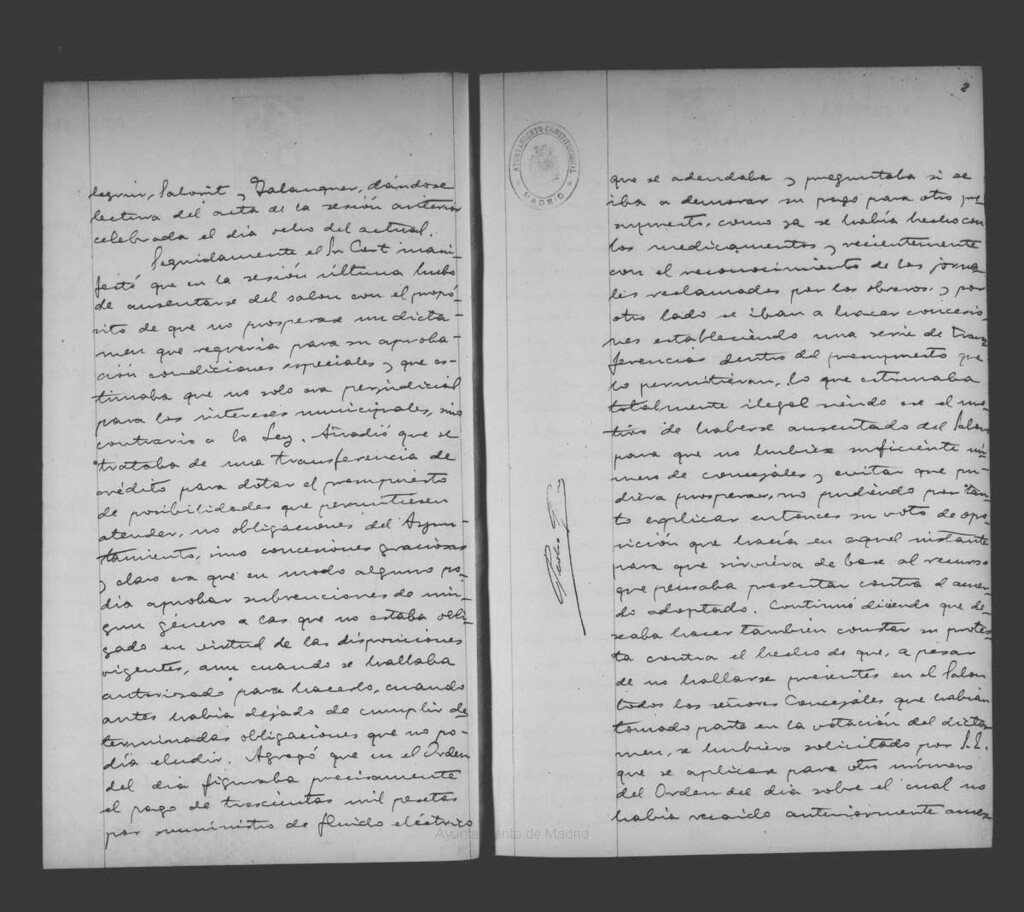 Saborit y Talanquer, dándose
lectura del acta de la sesión anterior
celebrada el día ocho del actual.
Seguidamente el Sr Cort mani-
festó que en la sesión última hubo
de ausentarse del salon con el propó-
sito de que no prosperase un dicta-
men que requeria para su aproba-
ción condiciones especiales y que es-
timaba que no solo era perjudicial
para los intereses municipales, sino
contrario a la Ley. Añadió que se
trataba de una transferencia de
crédito para dotar el presupuesto
de posibilidades que permitiesen
atender, no obligaciones del Ayun-
tamiento, sino concesiones graciosas
y claro era que en modo alguno po-
dia aprobar subvenciones de nin-
gun género a las que no estaba obli-
gado en virtud de las disposiciones
vigentes, aun cuando se hallaba
autorizado para hacerlo, cuando
antes habia dejado de cumplir de
terminadas obligaciones que no po-
día eludir. Agregó que en el Orden
del dia figuraba precisamente
el pago de trescientas mil pesetas
por suministro de fluido eléctrico
Ayuntamiento de Madrid
2
AYUNTAMIENTO CONSTITUCIONAL
MADRID
que se adeudaba y preguntaba si se
iba a demorar su pago para otro pre
supuesto, como ya se había hecho con
los medicamentos y recientemente
con el reconocimiento de los jorna
les reclamados por los obreros, y por
otro lado se iban a hacer concesio-
nes estableciendo una serie de trans
ferencias dentro del presupuesto que
lo permitieran, lo que estimaba
totalmente ilegal siendo ese el mo-
tivo de haberse ausentado del Salon
para que no hubiese suficiente nú-
mero de concejales y evitar que pu-
diera prosperar, no pudiendo por tan-
to explicar entonces su voto de opo-
sición que hacía en aquel instante
para que sirviera de base al recurso
que pensaba presentar contra el acuer
do adoptado. Continuó diciendo que de-
seaba hacer también constar su protes-
ta contra el hecho de que, a pesar
de no hallarse presentes en el Salon
todos los señores Concejales que habian
tomado parte en la votación del dicta
men, se hubiera solicitado por S.E.
que se aplicase para otro número
del Orden del dia sobre el cual no
habia recaido anteriormente